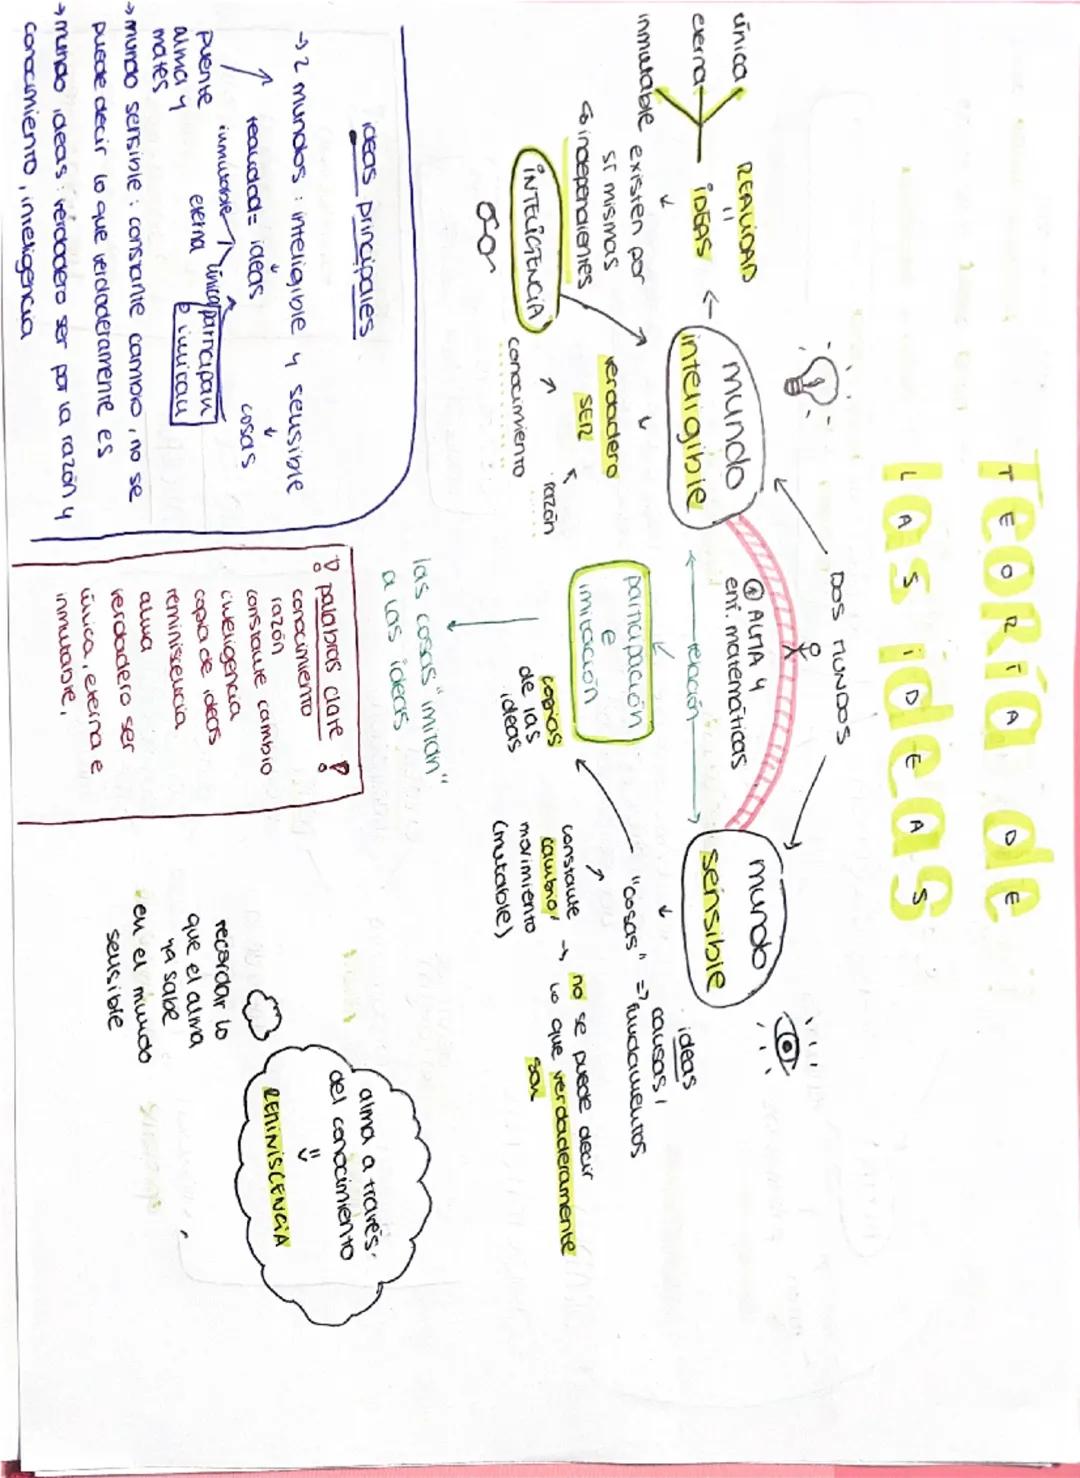 Teoría de
TEORÍA DE
las ideas
LAS IDEAS
DOS MUNDOS
mundo
inteligible
mundo
sensible
⊛ ALMA y
ent. matemáticas
relación
REALIDAD
=
IDEAS
única
eterna
inmutable
existen por
sí mismas
↳ independientes
INTELIGENCIA
verdadero
SER
razón
conocimiento
participación
e
imitación
copias
de las
ideas
las cosas "imitan"
a las ideas
"cosas" => fundamentos
causas,
ideas
constante
cambio,
movimiento
(mutable)
→ no se puede decir
lo que verdaderamente
son
alma a través
del conocimiento
=
REMINISCENCIA
recordar lo
que el alma
ya sabe
en el mundo
sensible
ideas principales
→ 2 mundos: inteligible y sensible
realidad = ideas
cosas
puente
alma y
mates
inmutable
eterna
única
participan
e imitan
→ mundo sensible: constante cambio, no se
puede decir lo que verdaderamente es
→ mundo ideas: verdadero ser por la razón y
conocimiento, inteligencia
! palabras clave !
conocimiento
razón
constante cambio
inteligencia
copia de ideas
reminiscencia
alma
verdadero ser
única, eterna e
inmutable,